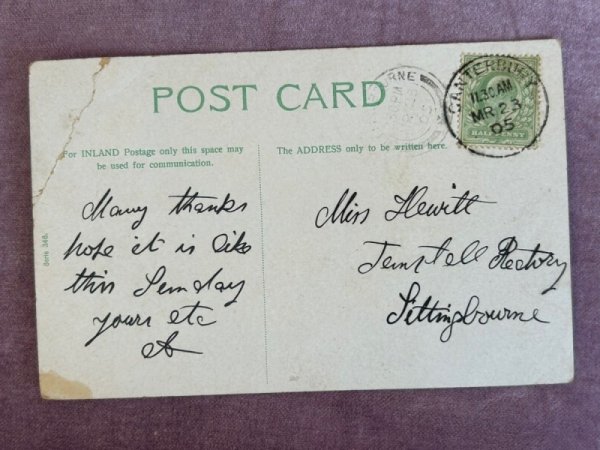 POST CARD
CANTERBURY
11.30 AM
MR 23
05
HALFPENNY
RNE
For INLAND Postage only this space may
be used for communication.
The ADDRESS only to be written here.
Many thanks
hope it is like
this Sunday
yours etc
Miss Hewitt
Tunstall Rectory
Sittingbourne